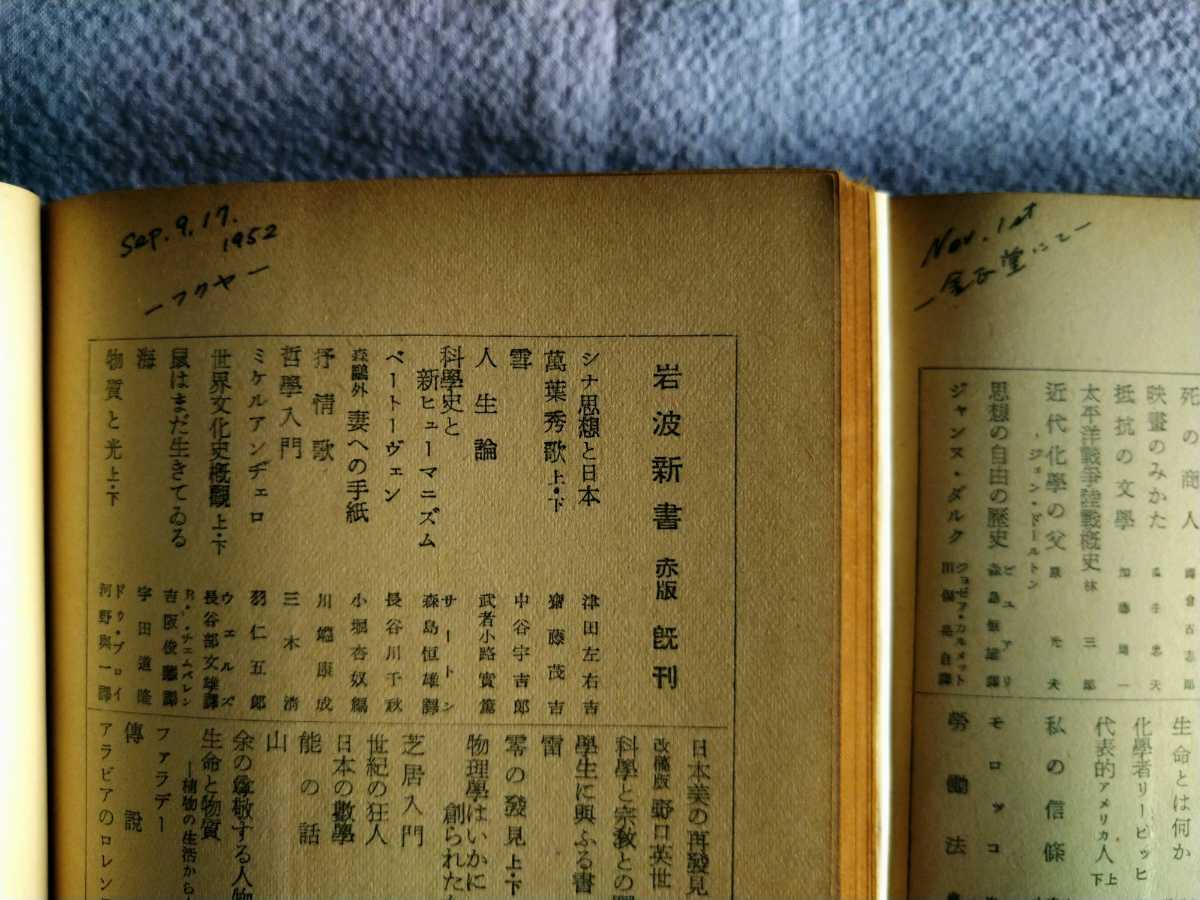 Sep. 9, 17.
1952
ーフクヤー
岩波新書 赤版 既刊
シナ思想と日本 津田左右吉
萬葉秀歌 上・下 齋藤茂吉
雪 中谷宇吉郎
人生論 武者小路實篤
科學史と
新ヒューマニズム サートン
森島恒雄譯
ベートーヴェン 長谷川千秋
森鷗外 妻への手紙 小堀杏奴編
抒情歌 川端康成
哲學入門 三木清
ミケルアンヂェロ 羽仁五郎
世界文化史槪觀 上・下 ウェルズ
長谷部文雄譯
鼠はまだ生きてゐる B・チェムバレン
吉阪俊藏譯
海 宇田道隆
物質と光 上・下 ドゥ・ブロイ
河野與一譯
日本美の再發見
改稿版 野口英世
科學と宗敎との
學生に與ふる書
雷
零の發見 上・下
物理學はいかに
創られた
芝居入門
世紀の狂人
日本の數學
能の話
山
余の尊敬する人物
生命と物質
ファラデー
―植物の生活から
傳說
アラビアのロレン
Nov. 1st
ー金正堂にてー
死の商人
映畫のみかた
抵抗の文學 加藤周一
太平洋戰爭陸戰槪史 林三郎
近代化學の父 原光夫
・ジョン・ドールトン
思想の自由の歷史 ビュアリ
森島恒雄譯
ジャンヌ・ダルク ジョゼフ・カルメット
生命とは何か
化學者リービッヒ
代表的アメリカ人 上下
私の信條
モロッコ
勞働法